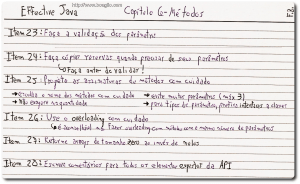 http://www.iougbr.com
Effective Java Capítulo 6-Métodos
Item 23: Faça a validação dos parâmetros
Item 24: Faça cópias reservas quando precisar de seus parâmetros
Faça antes de validar!
Item 25: Projete as assinaturas de métodos com cuidado
→ escolha o nome dos métodos com cuidado → evite muitos parâmetros (máx 3)
→ não exagere na quantidade → para tipos de parâmetros, prefira interfaces a classes
Item 26: Use o overloading com cuidado
é desaconselhável fazer overloading com métodos com o mesmo número de parâmetros
Item 27: Retorne arrays de tamanho zero ao invés de nulos
Item 28: Escreva comentários para todos os elementos exported da API